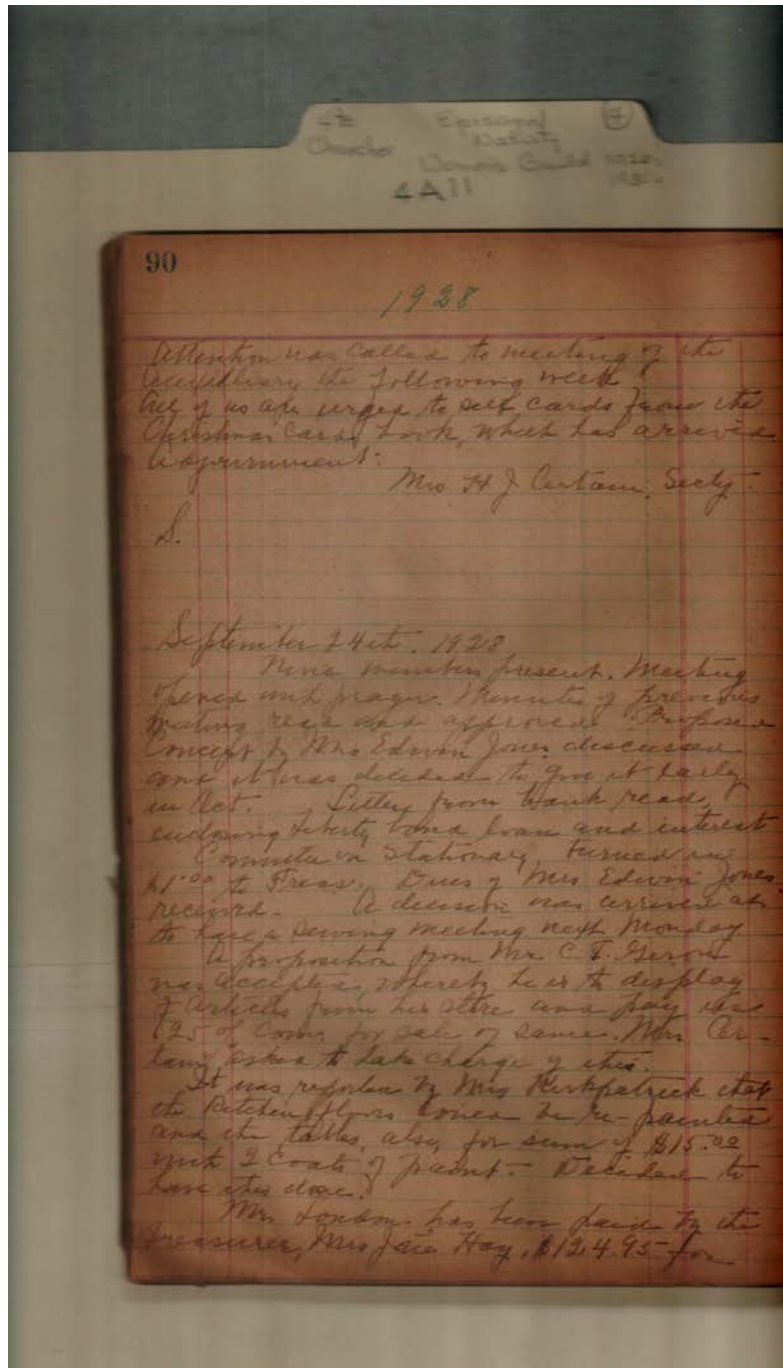 Episcopal
Church Nativity
Womens Guild 1920-
4A11 1930-
90
1928
Attention was called to meeting of the
Auxiliary the following week
All of us are urged to sell cards from the
Christmas Card book, which has arrived
Adjournment:
Mrs H J Certain, Secty.
S.
September 24th. 1928
Nine members present. Meeting
opened with prayer. Minutes of previous
meeting read and approved. Proposed
Concept by Mrs Edwin Jones discussed
and it was decided to give it early
in Oct. Letter from bank read,
enclosing Liberty bond loan and interest
Committee on Stationary, turned in
$1.00 to Treas. Dues of Mrs Edwin Jones
received. A decision was arrived at
to have a sewing meeting next Monday
A proposition from Mr. C. F.
was accepted, whereby he is to display
articles from his store and pay us
of Com. for sale of same. Mrs Cer-
tain asked to take charge of this.
It was reported by Mrs Kirkpatrick that
the Kitchen floors could be re-painted
and the tables, also, for sum of $15.00
with 2 Coats of paint. Decided to
have this done.
Mr. has been paid by the
Treasurer, Mrs Hay, $124.95 for